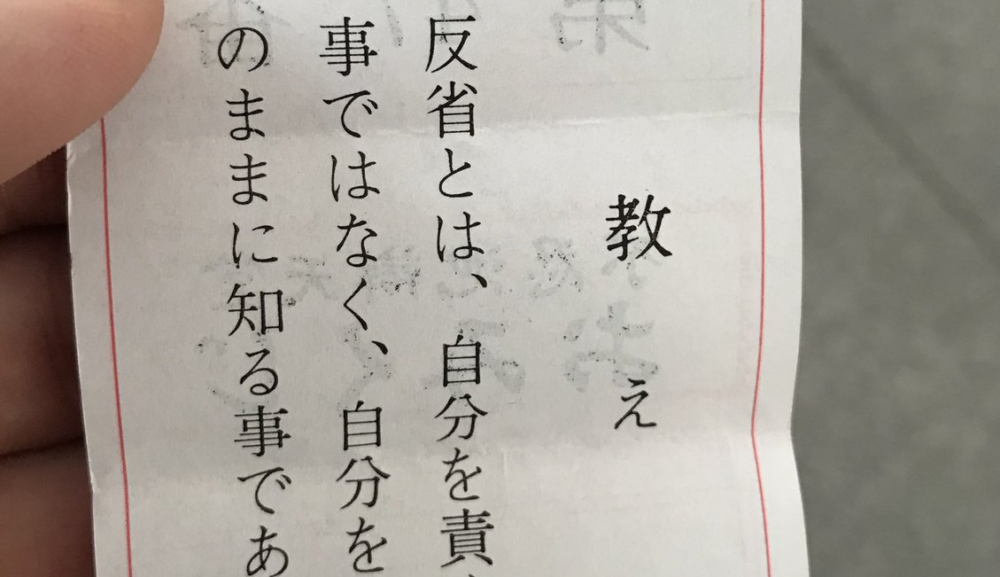 教え
反省とは、自分を責
事ではなく、自分を
のままに知る事であ